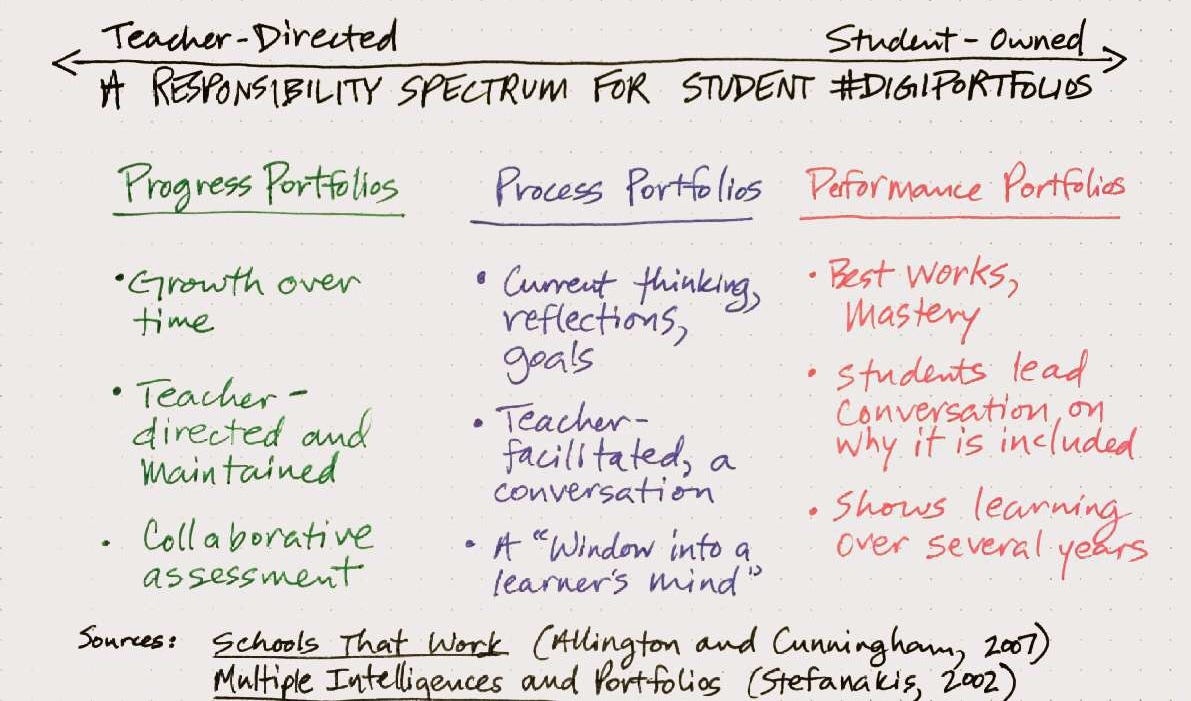 Teacher-Directed
Student-Owned
A RESPONSIBILITY SPECTRUM FOR STUDENT #DIGIPORTFOLIOS
Progress Portfolios
• Growth over
time
• Teacher-
directed and
maintained
• Collaborative
assessment
Process Portfolios
• Current thinking,
reflections,
goals
• Teacher-
facilitated, a
conversation
• A "Window into a
learner's mind"
Performance Portfolios
• Best works,
Mastery
• students lead
conversation on
why it is included
• Shows learning
over several years
Sources: Schools That Work (Allington and Cunningham, 2007)
Multiple Intelligences and Portfolios (Stefanakis, 2002)